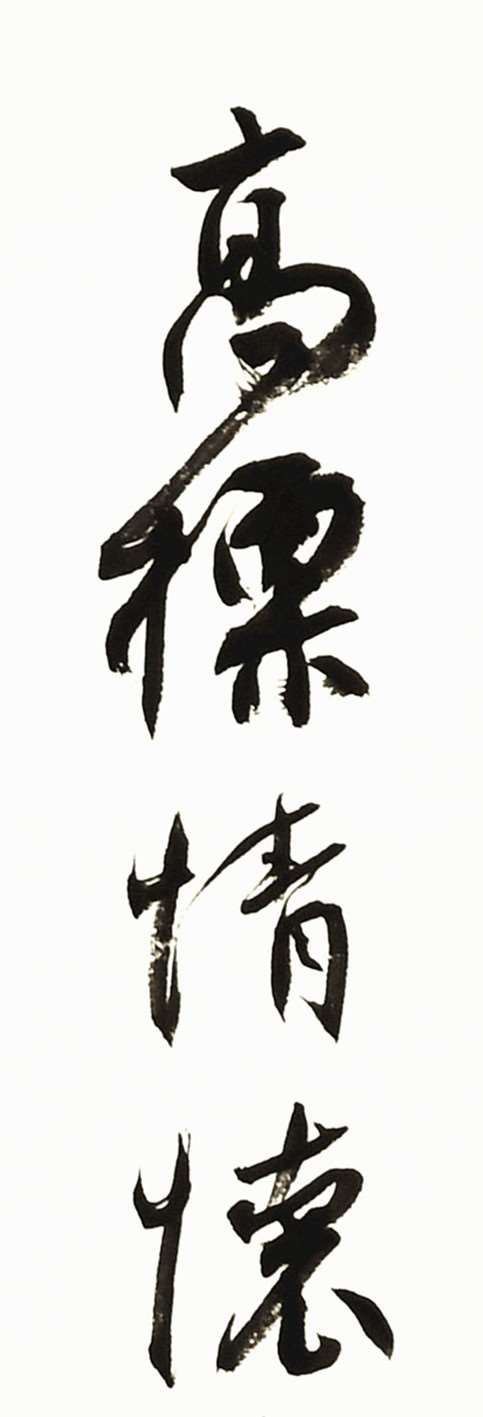 高標情懷